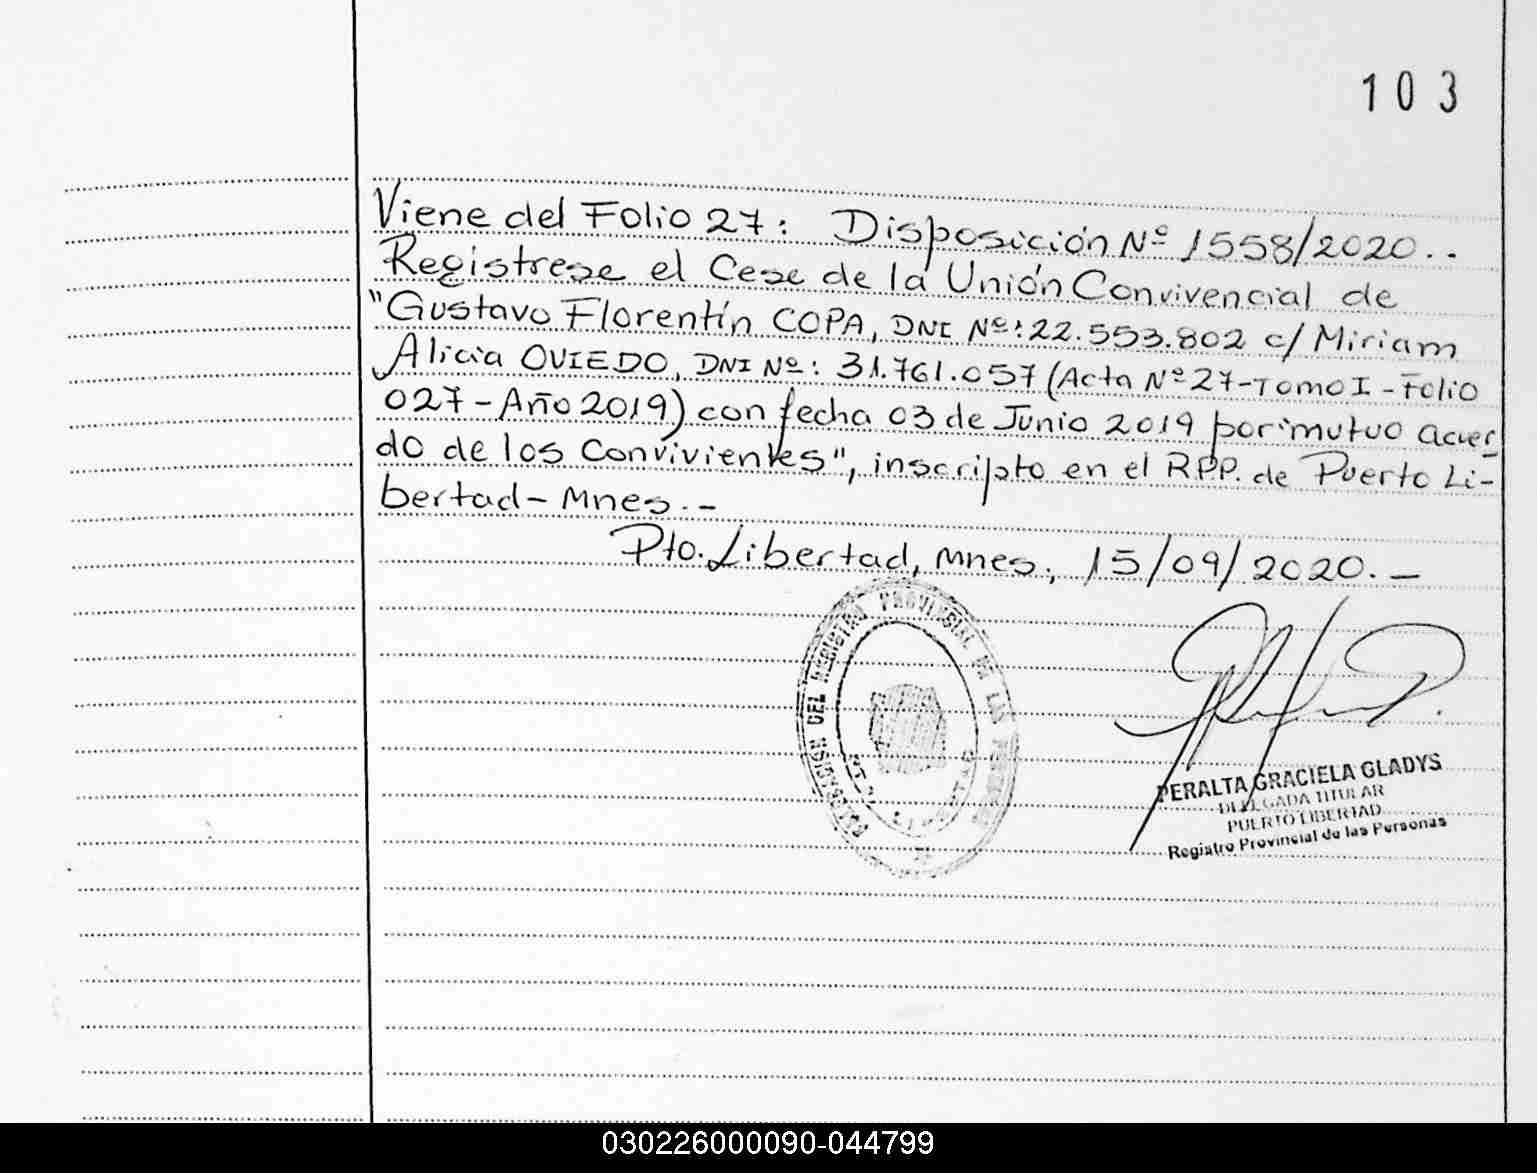 103
Viene del Folio 27: Disposición Nº 1558/2020..
Registrese el Cese de la Unión Convivencial de
"Gustavo Florentín COPA, DNI Nº: 22.553.802 c/ Miriam
Alicia OVIEDO, DNI Nº: 31.761.057 (Acta Nº 27-Tomo I-Folio
027-Año 2019) con fecha 03 de Junio 2019 por mutuo acuer
do de los Convivientes", inscripto en el RPP. de Puerto Li-
bertad-Mnes.-
Pto. Libertad, Mnes, 15/09/2020.-
DEL REGISTRO PROVINCIAL DE LAS PERSONAS
PERALTA GRACIELA GLADYS
DELEGADA TITULAR
PUERTO LIBERTAD
Registro Provincial de las Personas
030226000090-044799